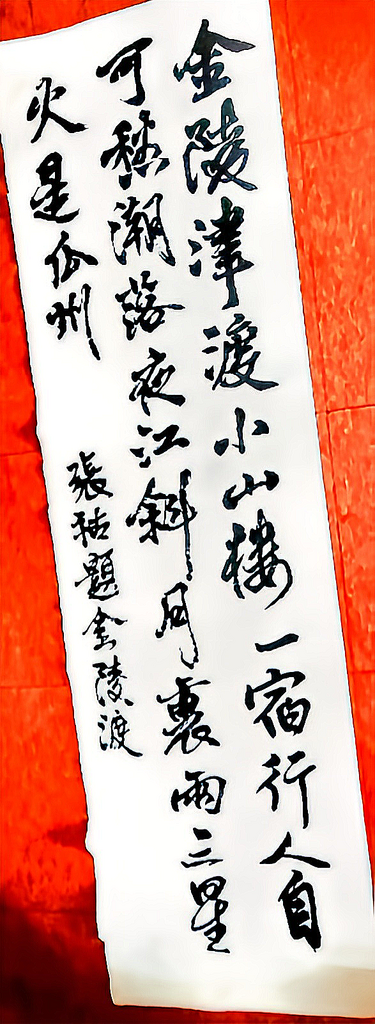 金陵津渡小山樓一宿行人自
可愁潮落夜江斜月裏兩三星
火是瓜州
張祜題金陵渡